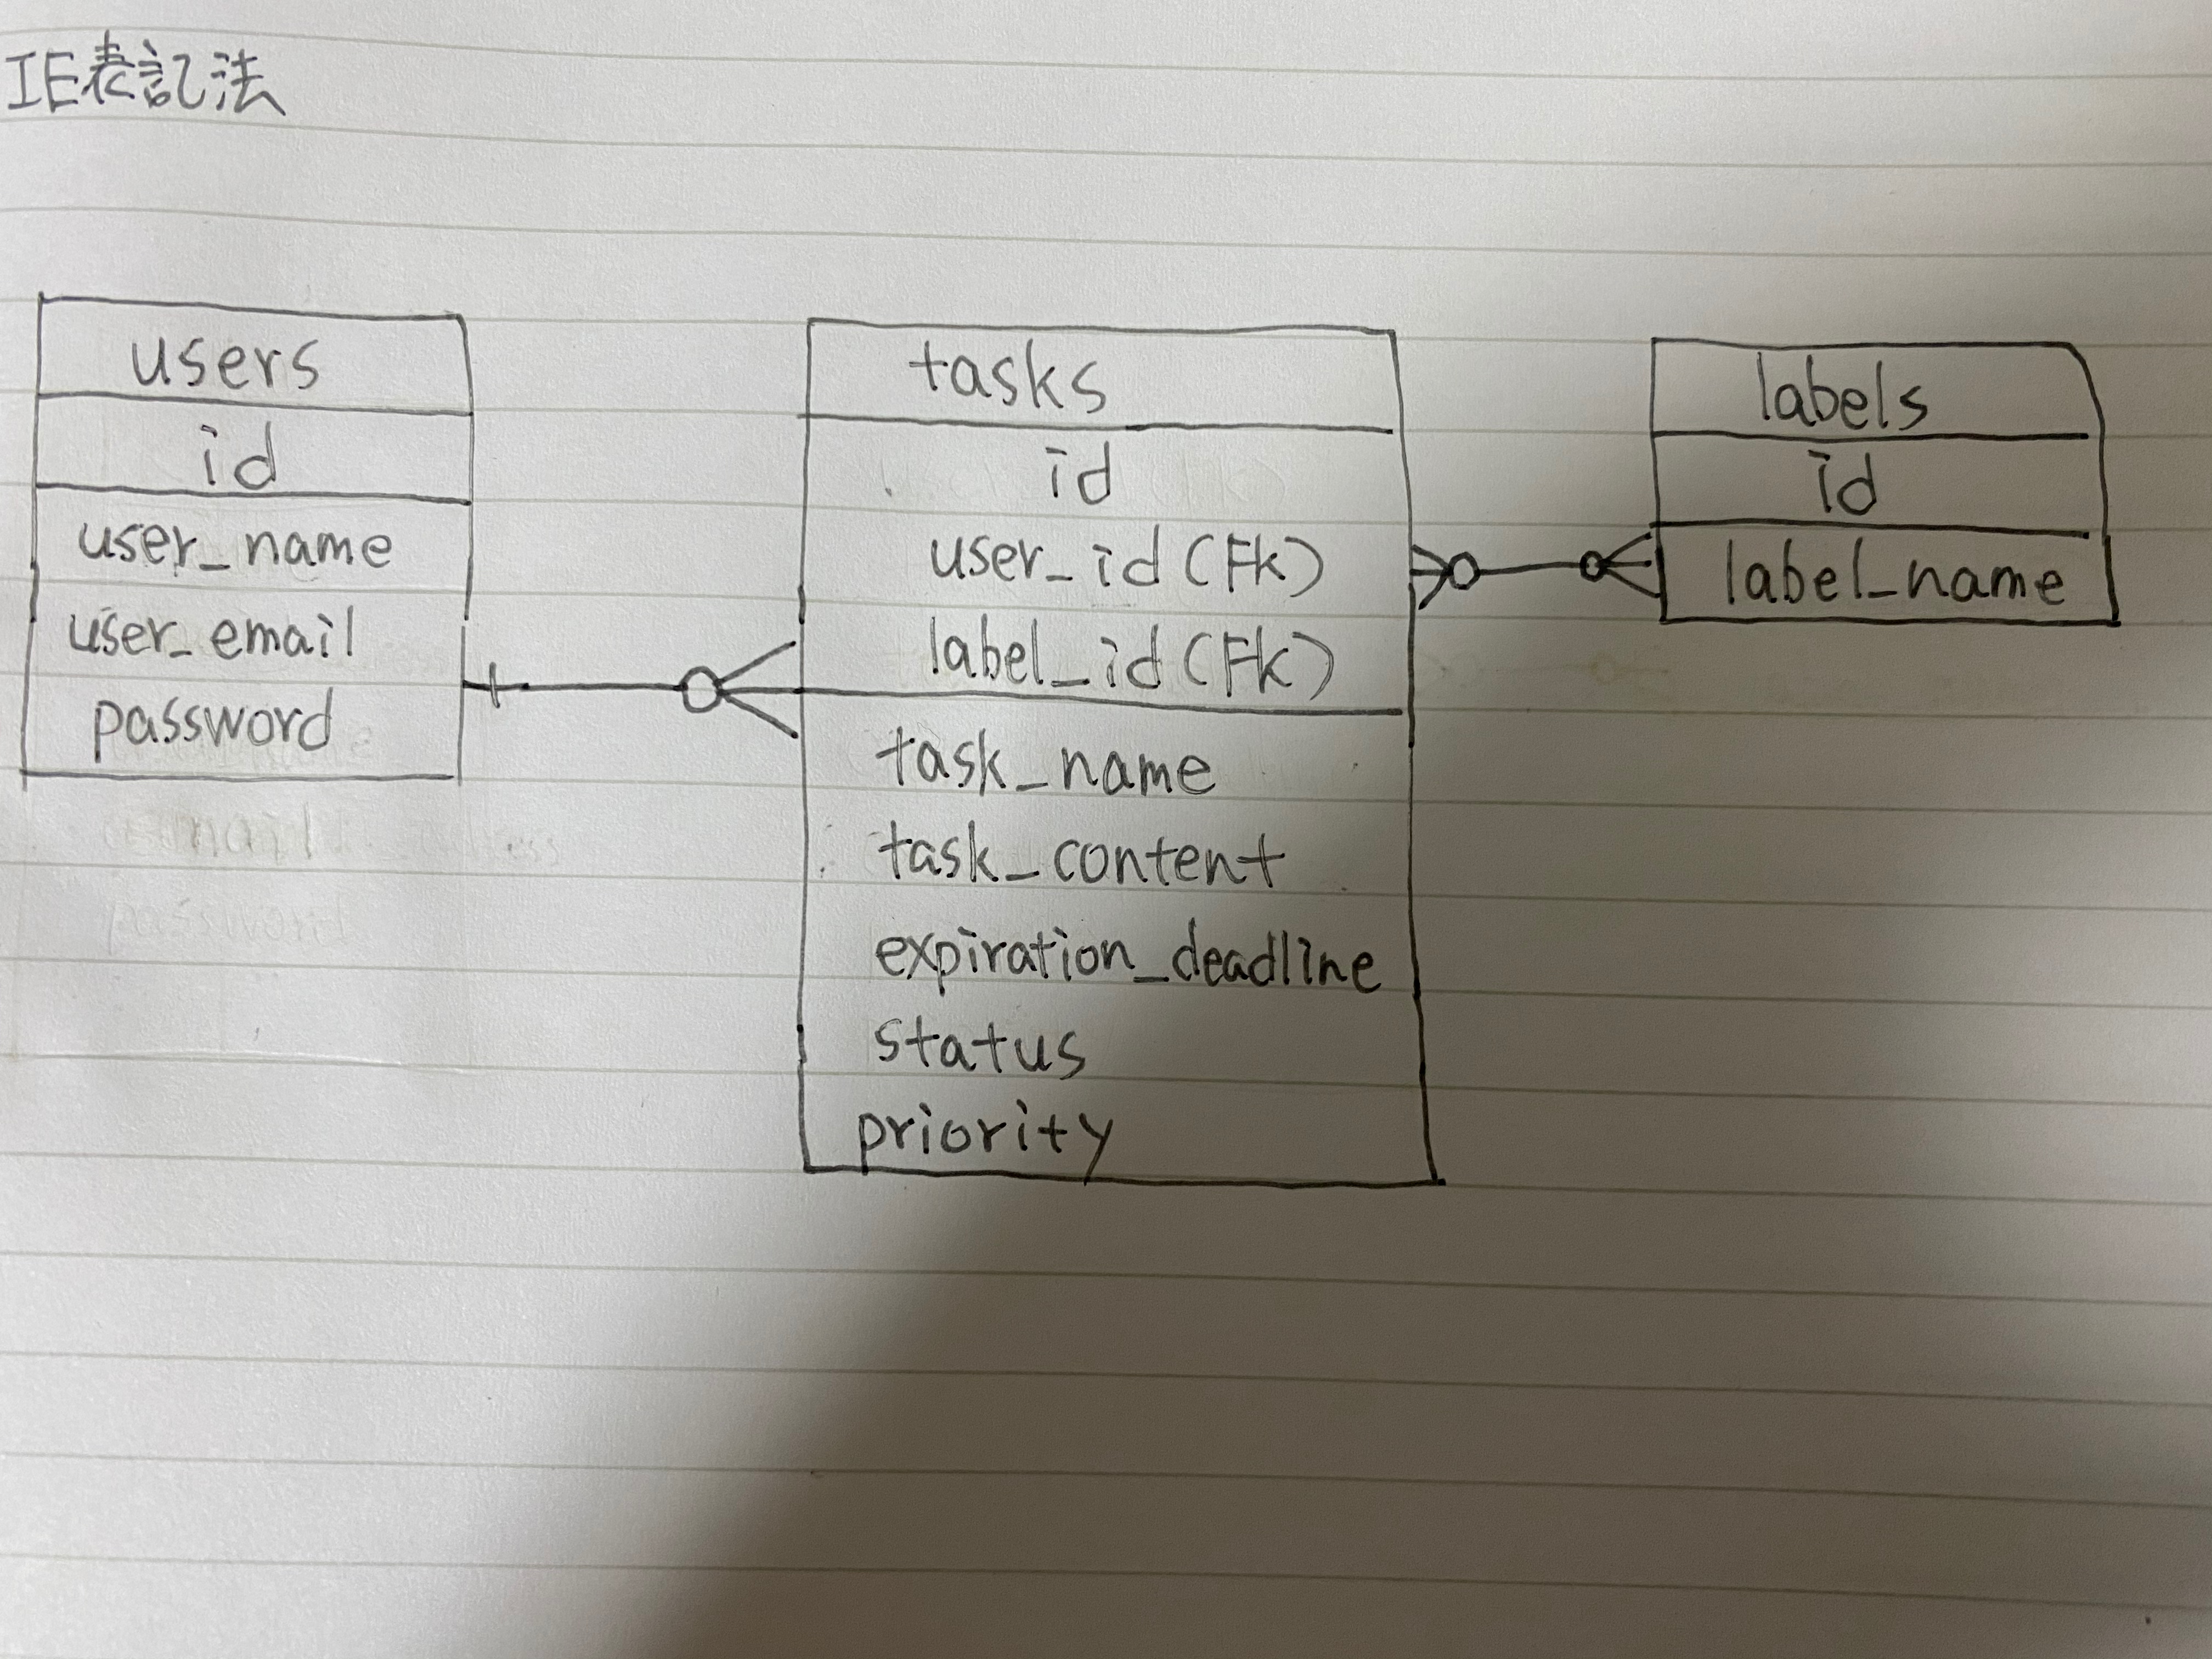 IE表記法
users
id
user_name
user_email
password
tasks
id
user_id(FK)
label_id(FK)
task_name
task_content
expiration_deadline
status
priority
labels
id
label_name